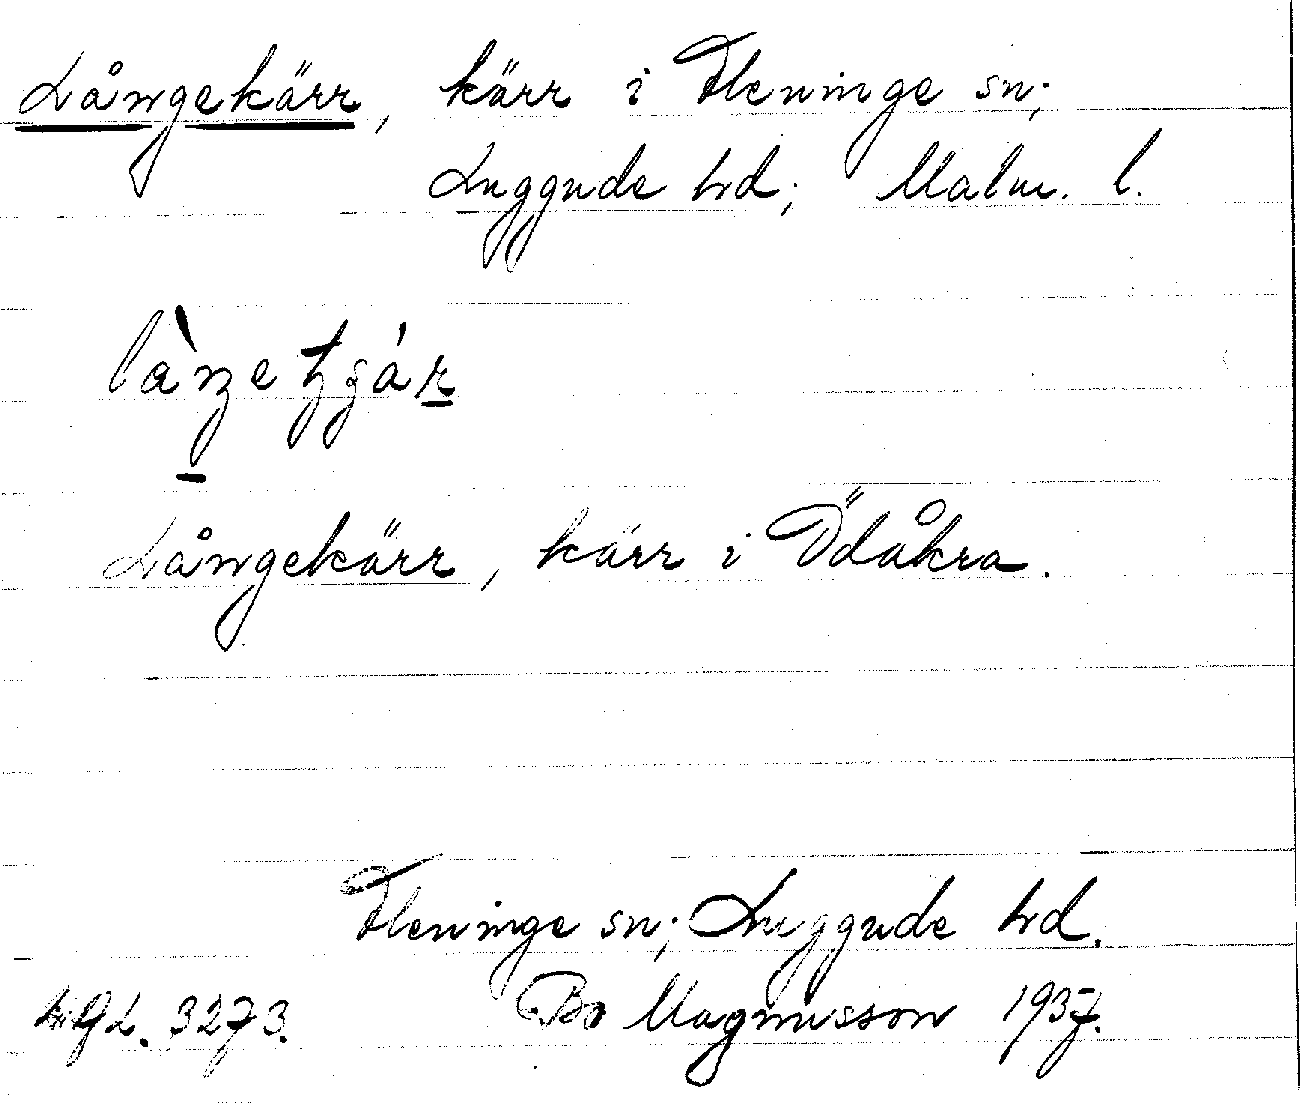 Långekärr, kärr i Fleninge sn;
Luggude hd; Malm. l.
Långekärr, kärr i Ödåkra.
Fleninge sn; Luggude hd.
3273. Bo Magnusson 1937.